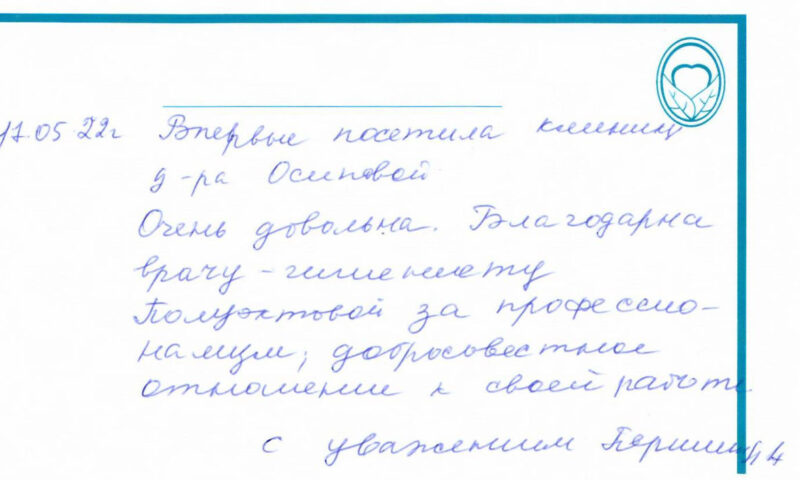 17.05 22г Впервые посетила клинику
д-ра Осиповой
Очень довольна. Благодарна
врачу-гигиенисту
Полуэктовой за профессио-
нализм, добросовестное
отношение к своей работе
с уважением